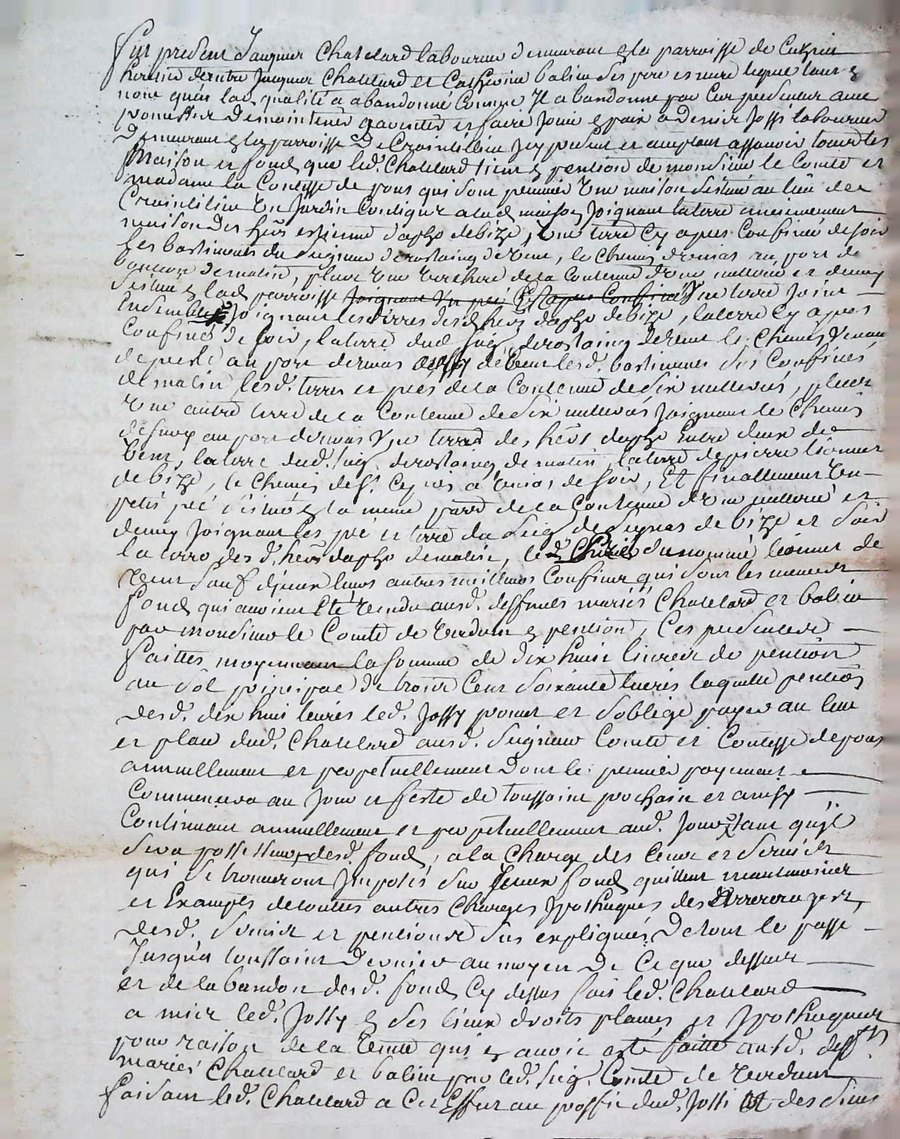 fut present Jacques Chatelard laboureur demeurant en la parroisse de
heritier de Jacques Chatelard et Catherine balin ses pere et mere lequel tant en
nom qu'en lad. qualité a abandonné comme Il abandonne par Ces presentes avec
promesse de maintenir garentir et faire Jouir en paix a denis Jossi laboureur
demeurant en la parroisse de Craintilieu Icy present et acceptant assavoir tous les
Maison et fond que led. Chatelard tient en pention de monsieur le Comte et
madame la Contesse de pons qui sont premier Une maison Scituée au lieu de
Craintilieu Un Jardin Contigue a lad. maison Joignant la terre
maison des hers estienne dapzo de bize, Une terre Cy apres Confinée de soir
les bastiments du seigneur de rostaing de bize, le Chemin de
de matin, plus Une de la Contenue d'Une metteree et demy
Scituée en lad. parroisse Joignant Un pré Cy apres Confiné Une terre Joint
Ensemble Joignant les terres desd. hers dapzo de bize, la terre Cy apres
Confinée de soir, la terre dud. seig. de rostaing de bize le Chemin
de au port de de vent lesd. bastiments Sus Confinés
de matin lesd. terres et prés de la Contenue de six metterées, plus
Une autre terre de la Contenue de six metterées Joignant le Chemin
de au port de Une terre des hers dapzo Entre deux de
vent, la terre dud. seig. de rostaing de matin, la terre de pierre Lionnet
de bize, le Chemin de St. a de soir, Et finallement Un
petit pré Scitué en la meme parr. de la Contenue d'Une metteree et
demy Joignant les pré et terre du seig. de de bize et soir
la terre desd. hers dapzo de matin, le du nommé Lionnet de
vent Sauf d'yeux leurs autres meilleurs Confins qui sont les memes
fond qui avoient Eté vendu ausd. deffunts mariés Chatelard et balin
par monsieur le Comte de Verdun en pention, Ces presentes
faittes moyennant la somme de dix huit livres de pention
au sol principal de trois Cent Soixante livres laquelle pention
desd. dix huit livres led. Jossy promet et s'oblige payer au lieu
et place dud. Chatelard ausd. Seigneur Comte et Contesse de pons
annuellement et perpetuellement dont le premier payement
Commencera au Jour et feste de toussaint prochain et ainsy
Continuant annuellement et perpetuellement aud. Jour tant qu'il
sera possesseur desd. fond, a la Charge des Cens et Servis
qui se trouveront Imposés sur Iceux fond quittent neantmoins
et Exempts de touttes autres Charges Ipothèques des Arrerages
desd. Servis et pentions sus expliquées de tout le passé
Jusqu'a toussaint dernier au moyen de Ce que dessus
et de l'abandon desd. fond Cy dessus fait led. Chatelard
a mis led. Jossy en ses lieux droits places et Ipotheques
pour raison de la vente qui en avoit esté faitte ausd. deff.ts
mariés Chatelard et balin par led. seig. Comte de Verdun
faisant led. Chatelard a Cet Effet au proffit dud. Jossi et des siens